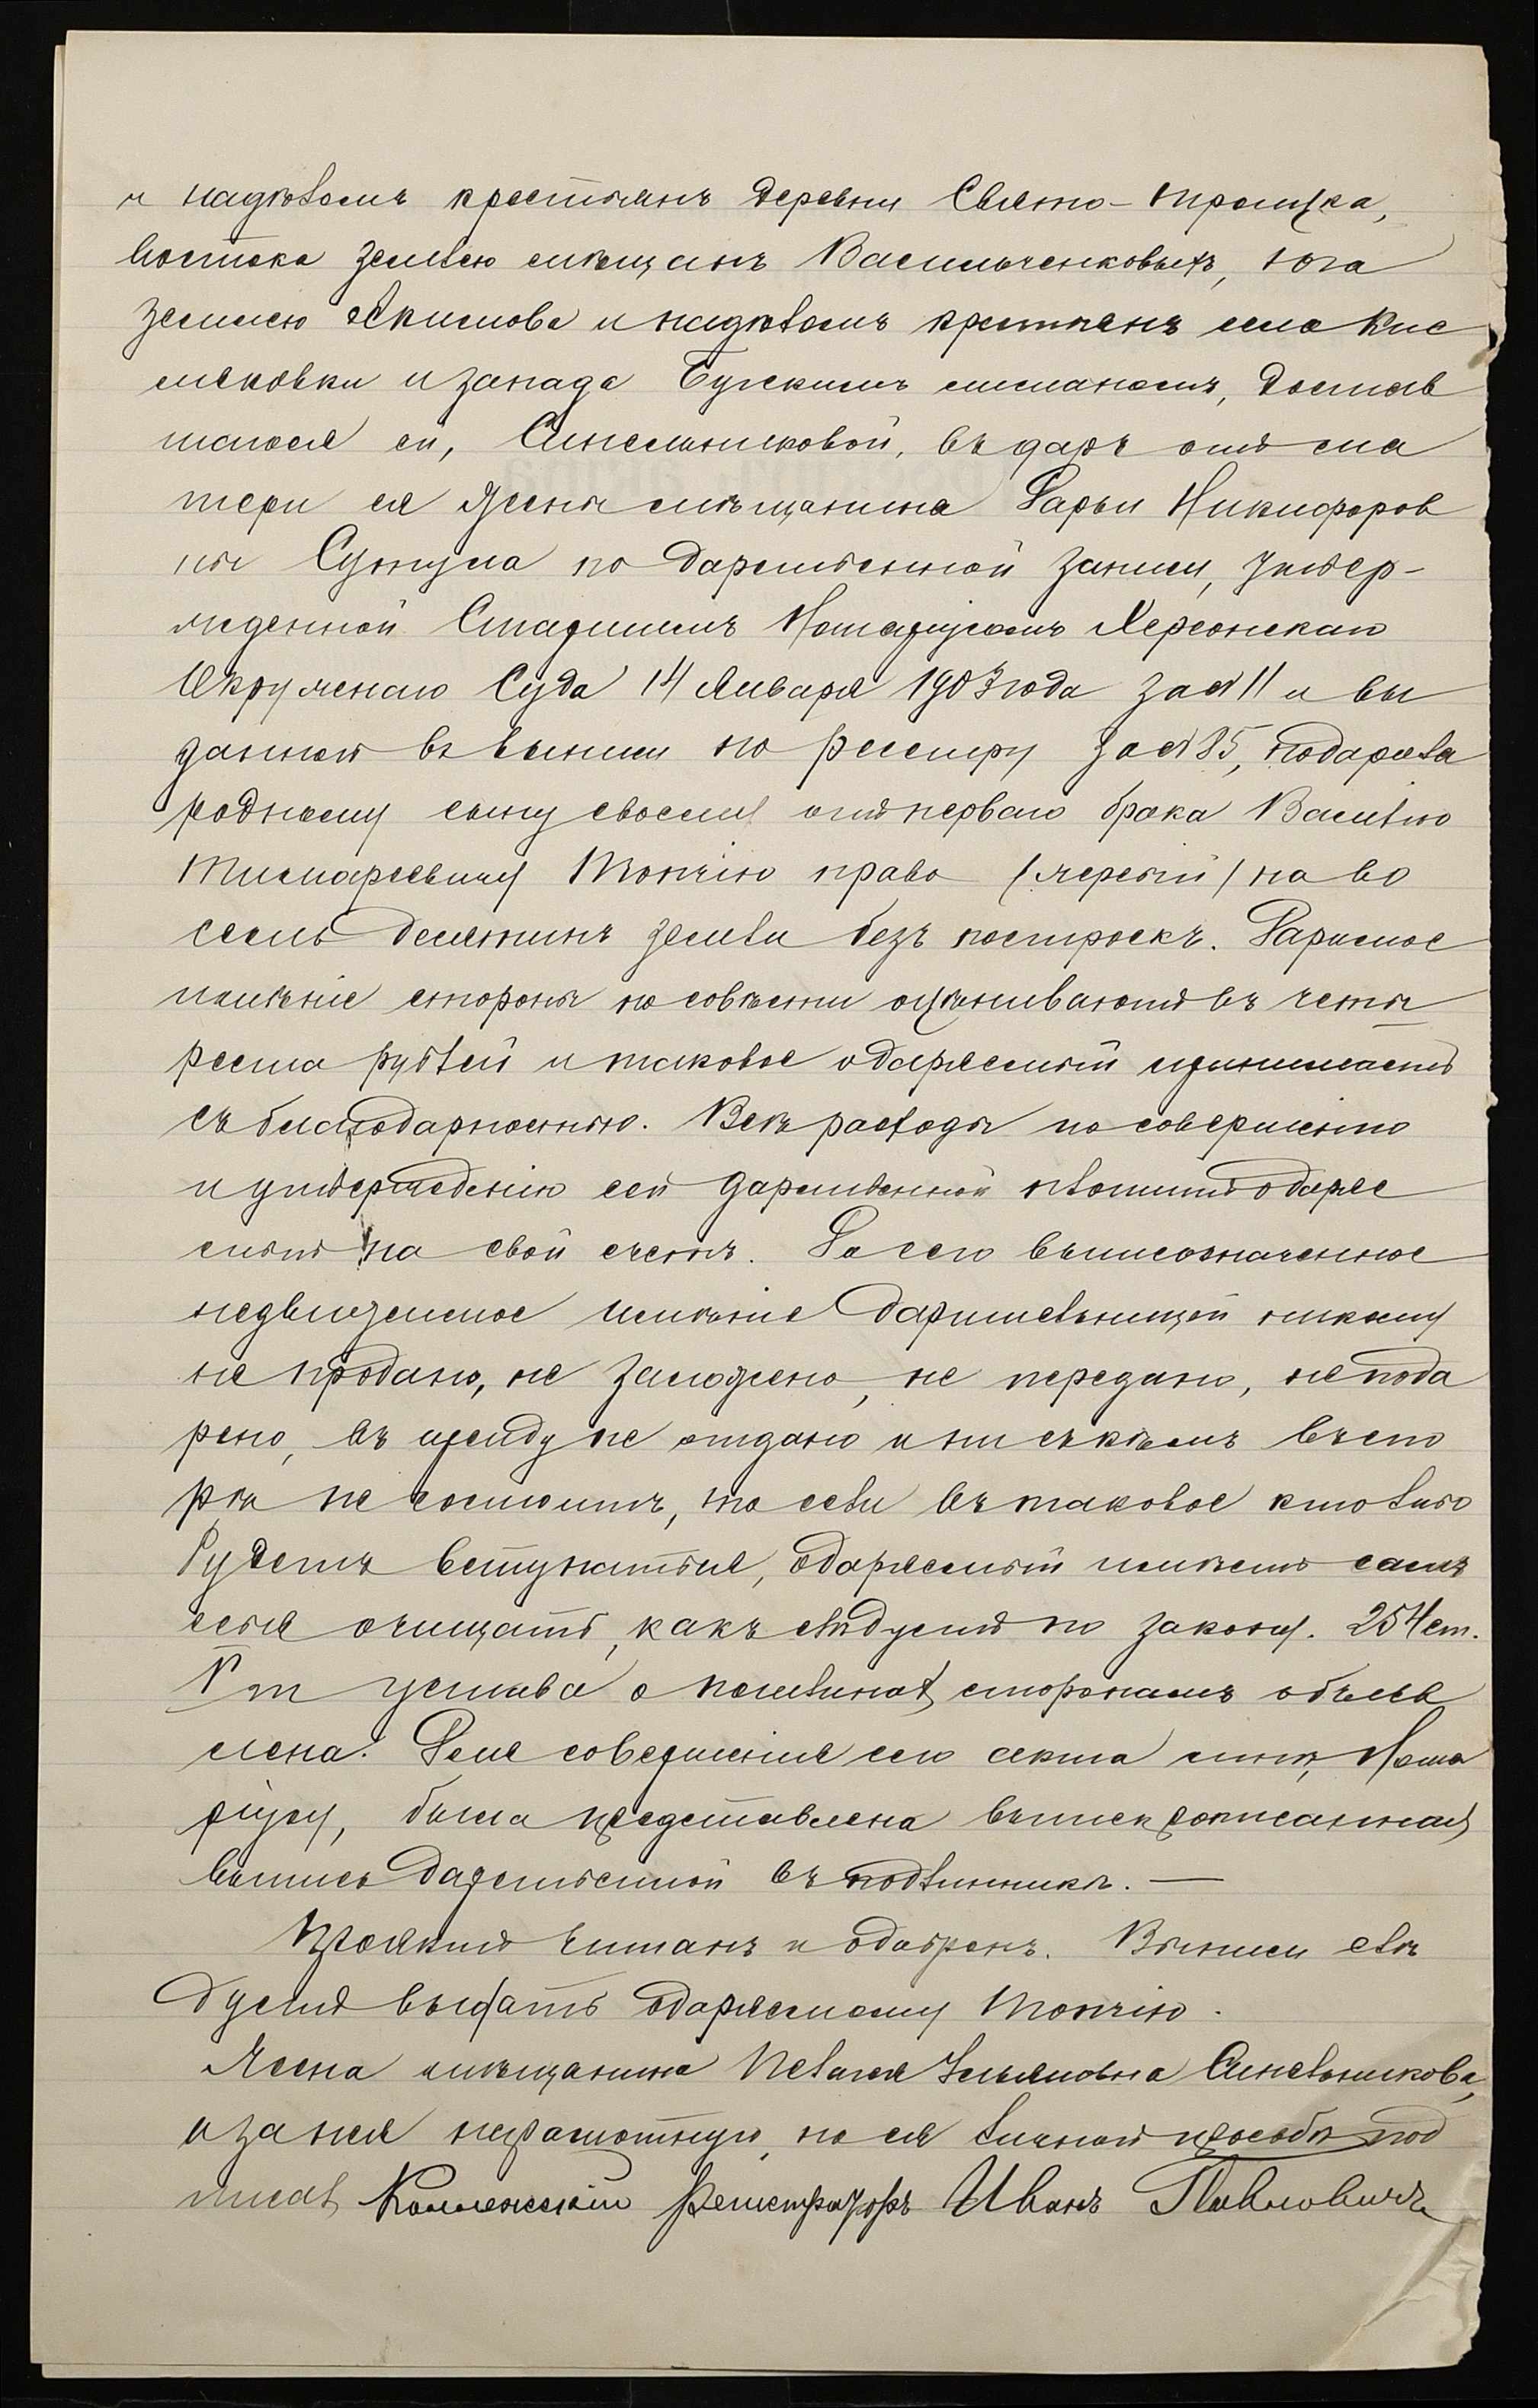 и надѣломъ крестьянъ деревни Свято-Троицка,
востока землею мѣщанъ Васильченковыхъ, юга
землею Акимова и надѣломъ крестьянъ села Кис
ляковки и запада Бугскимъ лиманомъ, достав
шагося ей, Синельниковой, въ даръ отъ ма
тери ея жены мѣщанина Дарьи Никифоров
ны по дарственной записи, утвер-
жденной Старшимъ Нотаріусомъ Херсонскаго
Окружнаго Суда 14 Января 1903 года за № 11 и вы
данной въ выписи по реестру за № 85, подарила
родному сыну своему отъ перваго брака Василію
Топчію право (жеребій) на во
семь десятинъ земли безъ построекъ. Даримое
имѣніе стороны по совѣсти оцѣниваютъ въ четы
реста рублей и таковое одаряемый принимаетъ
съ благодарностью. Всѣ расходы по совершенію
и утвержденію сей дарственной платитъ одаряе
мый на свой счетъ. До сего вышеозначенное
недвижимое имѣніе дарительницей никому
не продано, не заложено, не передано, не пода
рено, въ аренду не отдано и ни съ кѣмъ въ спо
рѣ не состоитъ, то если въ таковое кто либо
будетъ вступаться, одаряемый имѣетъ самъ
себя очищать, какъ слѣдуетъ по закону. 254 ст.
V т устава о пошлинахъ сторонамъ объяв
лена. Для совершенія сего акта мнѣ, Нота
ріусу, была представлена вышепрописанная
выпись дарственной въ подлинникѣ. —
Проектъ читанъ и одобренъ. Выпись слѣ
дуетъ выдать одаряемому Топчію.
Жена мѣщанина Пелагея Ульяновна Синельникова,
а за нея неграмотную, по ея личной просьбѣ под
писалъ Коллежскій Регистраторъ Иванъ Павловичъ